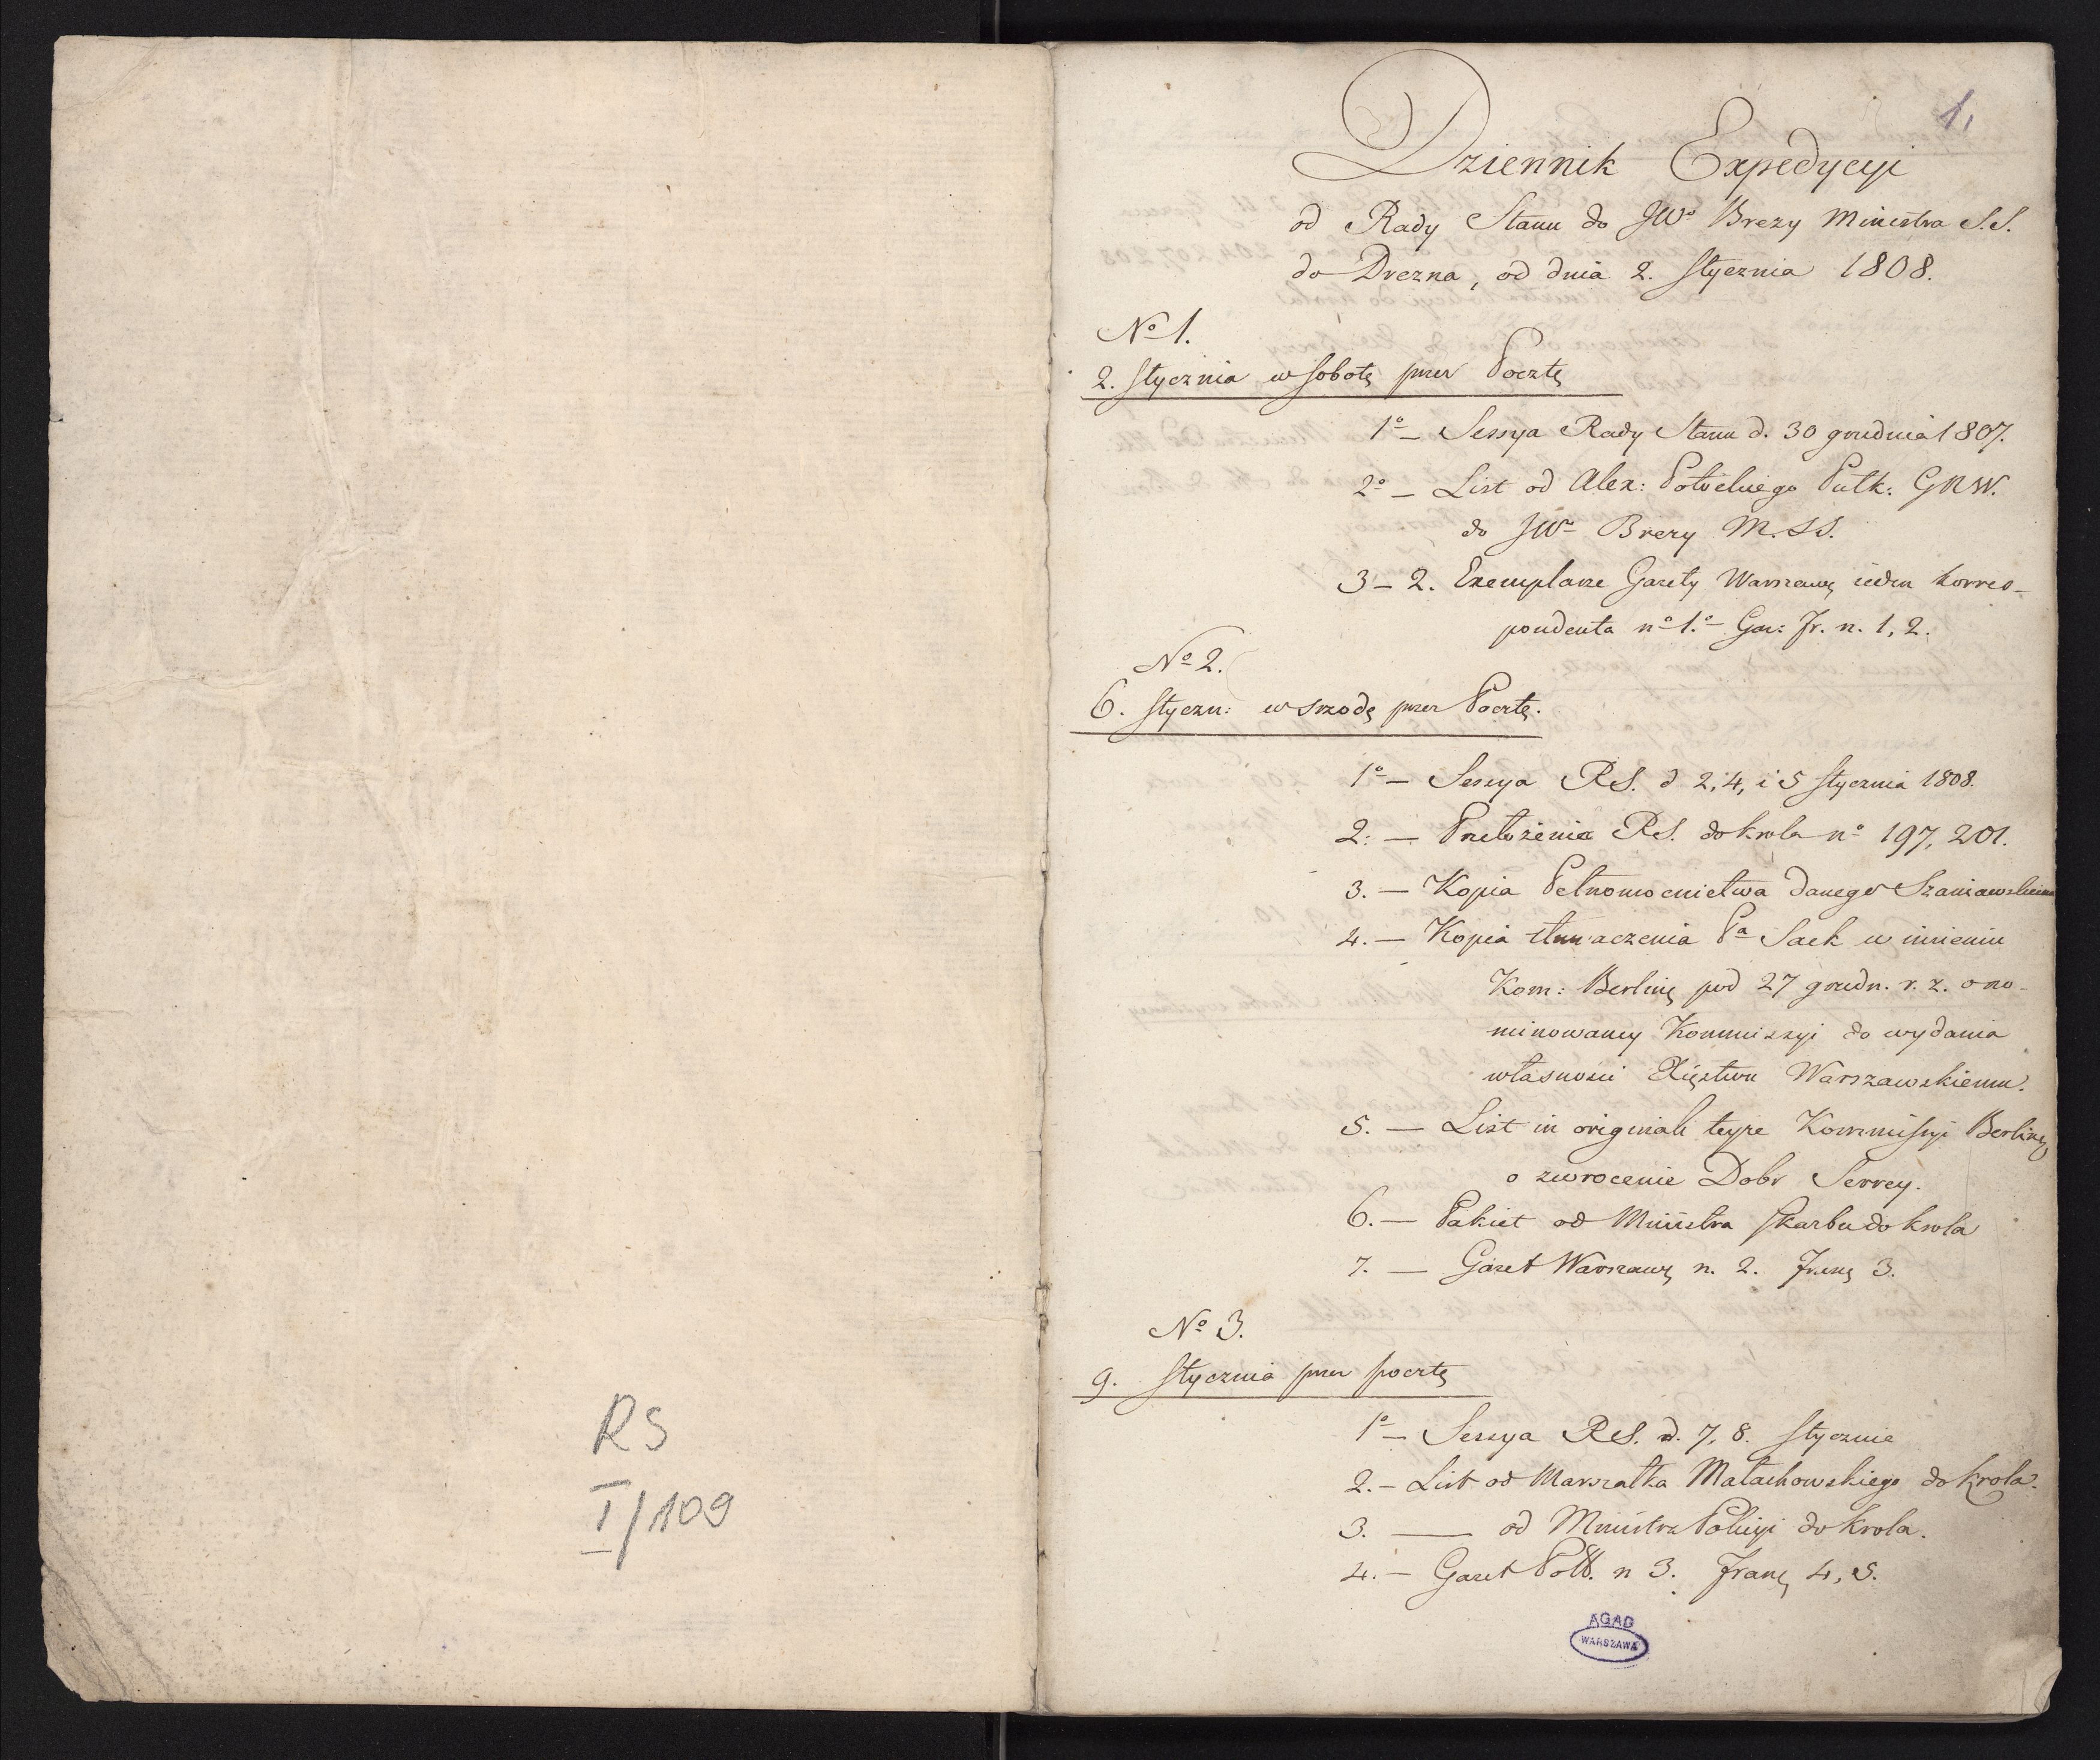 RS
I/109
1.
Dziennik Expedycyi
od Rady Stanu do JWo Brezy Ministra S.S.
do Drezna, od dnia 2. Stycznia 1808.
No 1.
2. Stycznia w Sobotę przez Pocztę
1o — Sessya Rady Stanu d. 30 grudnia 1807.
2o — List od Alex: Potockiego Pułk: GNW.
do JWo Brezy M.SS.
3 — 2. Exemplarze Gazety Warszawę ieden korres-
pondenta no 1.o Gaz: Fr. n. 1, 2.
No 2.
6. Styczn: w Srzodę przez Pocztę.
1o — Sessya RS. d 2, 4, i 5 Stycznia 1808.
2. — Przełożenia RS. do krola no 197, 201.
3. — Kopia Pełnomocnictwa danego Szaniawskiemu
4. — Kopia tłumaczenia Pa Sack w imieniu
Kom: Berliną pod 27 grudn. r. z. o no-
minowaney Kommissyi do wydania
własnosci Xięstwu Warszawskiemu.
5. — List in originali teyże Kommissyi Berliną
o zwrocenie Dobr Serrey.
6. — Pakiet od Ministra Skarbu do krola
7. — Gazet Warszawę n. 2. Franę 3.
No 3.
9. Stycznia przez pocztę
1o — Sessya RS. d. 7, 8. Stycznia
2. — List od Marszałka Małachowskiego do krola.
3. — od Ministra Policyi do krola.
4. — Gazet Pol. n 3. Franę 4, 5.
AGAD
WARSZAWA